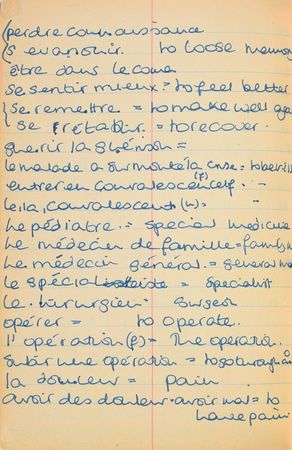 (perdre connaissance
(s'evanouir. to loose memory
être dans le coma
se sentir mieux = to feel better
se remettre = to make well aga
se retablir = to recover.
guerir la guerison =
le malade a surmonté la crise = to be
entrer en convalescence (f)
le, la, convalescent (m) =
Le pédiatre = special medicine
Le médecin de famille = family
Le médecin général = general
le spécialiste = specialist
Le chirurgien = Surgeon
opérer = to operate.
l'opération (f) = The operation.
subir une opération = to go through an O
la douleur = pain
avoir des douleur = avoir mal = to
have pain